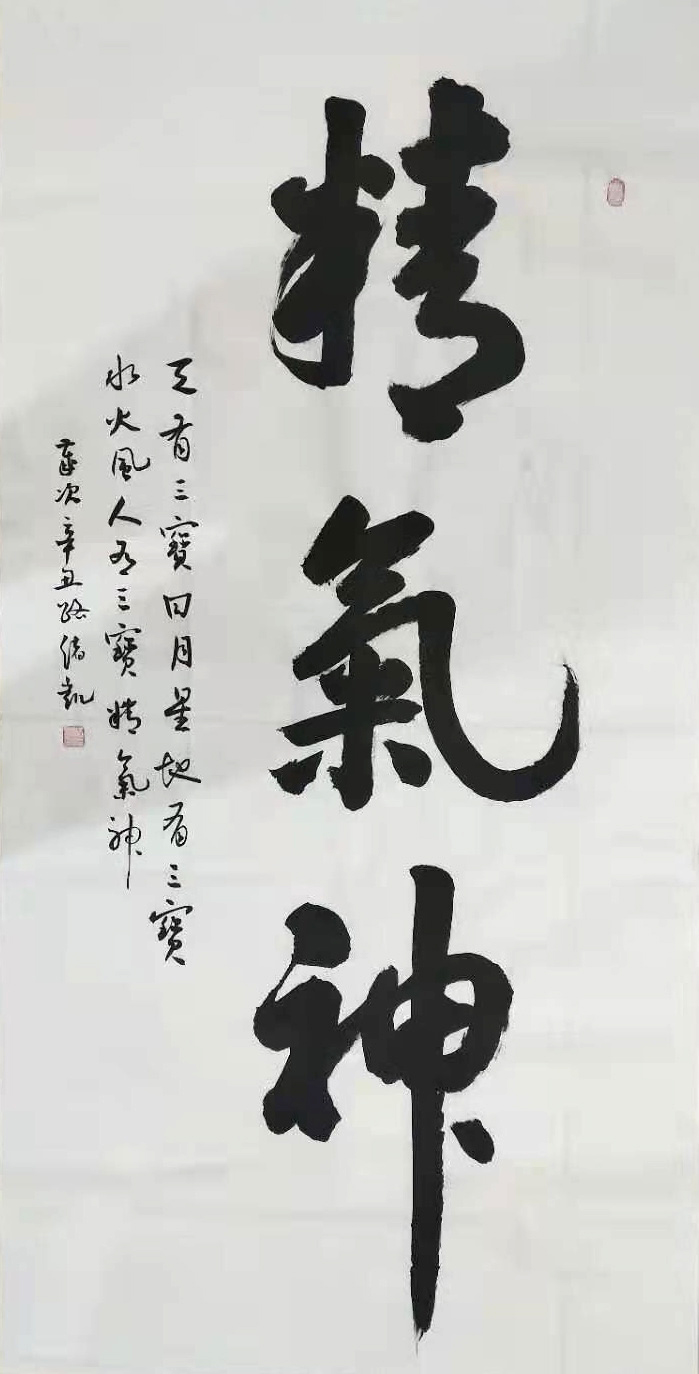 精氣神
天有三寶日月星地有三寶
水火風人有三寶精氣神
歲次辛丑路緒凱